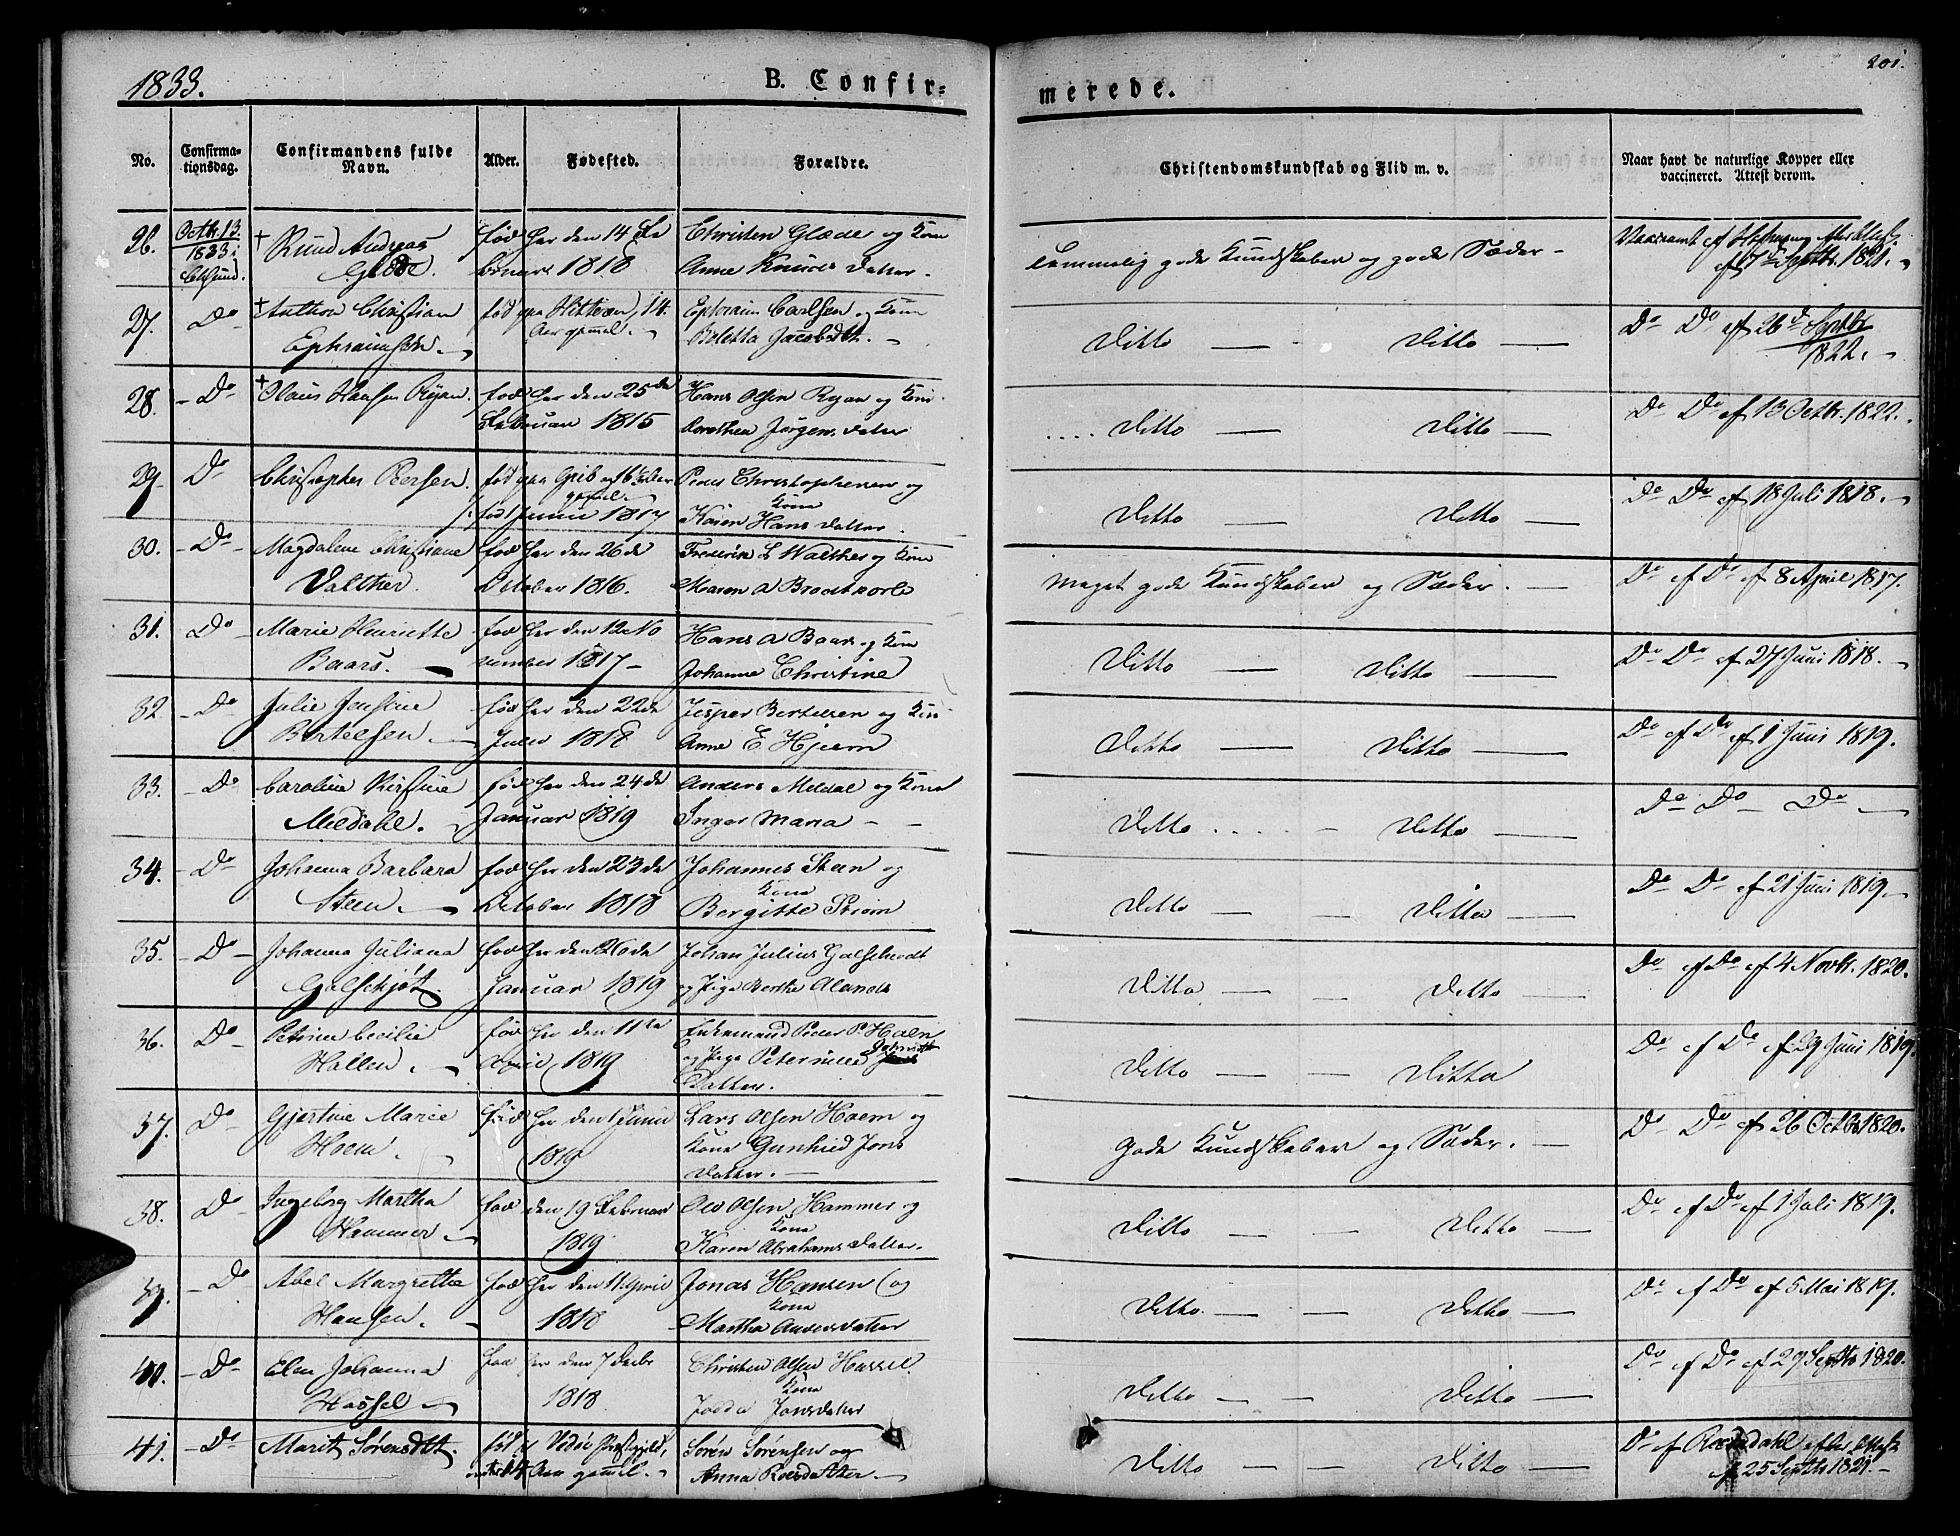 1833.
B. Confir=
merede.
201.
No.
Confirma-
tionsdag.
Confirmandens fulde
Navn.
Alder.
Fødested.
Forældre.
Christendomskundskab og Flid m. v.
Naar havt de naturlige Kopper eller
vaccineret. Attest derom.
26. Octbr. 13 1833 + Knud Andreas Glæde fød her den 14 Fe
bruar 1818 Christen Glæde og Kone
Anne Knuds Datter.
Temmelig gode Kundskaber og gode Sæder - 1821.
27. Do + Anthon Christian
Ephraimsen fød paa Hitteren, 14.
Aar gammel. Ephraim Carlsen og Kone
Jacobsdtr.
Ditto — Ditto — Do Do af 26de Septbr
1822.
28. Do + Claus Hansen Ryan. fød her den 25de
Februar 1815 Hans Olsen Ryan og Kone
Dorothea Jørgens Datter
Ditto — Ditto — Do Do af 13 Octbr. 1822.
29. Do Christopher Peersen. fød paa Grib og 16 Aar
gammel
fød 1 Junii 1817 Peder Christophersen og
Kone
Karen Hans Datter.
Ditto — Ditto — Do Do af 18 Juli 1818.
30. Do Magdalene Christiane
Valther. fød her den 26de
October 1816. Frederik L Walther og Kone
Maren A Brodtkorb
Meget gode Kundskaber og Sæder. — Do af Do af 8 April 1817.
31. Do Marie Henriette
Baars. fød her den 12 No
vember 1817 Hans A Baars og Kone
Johanne Christine
Ditto — Ditto — Do Do af 27 Juni 1818.
32 Do Julie Jensine
Bertelsen fød her den 22de
Julii 1818 Jesper Bertelsen og Kone
Anne E Hjelm
Ditto — Ditto — Do af Do af 1 Juni 1819.
33. Do Caroline Kirstine
Meldahl. fød her den 24de
Januar 1819 Anders Meldal og Kone
Inger Maria
Ditto — Ditto — Do Do Do
34. Do Johanna Barbara
Steen. fød her den 23de
October 1818 Johannes Steen og
Kone
Bergitte Strøm
Ditto — Ditto — Do Do af 21 Juni 1819.
35. Do Johanna Juliana
Gelschjøt. fød her den 26de
Januar 1819 Johan Julius Galschiodt
og Pige Berthe Alands
Ditto — Ditto — Do af Do af 4 Novbr. 1820.
36. Do Petrine Cecilie
Hallen. fød her den 11te
April 1819 Enkemand Peder P.
og Pige Peternille
Datter.
Ditto — Ditto Do af Do af 29 Juni 1819.
37. Do Gjertine Marie
Hoem. fød her den 1 Junii
1819 Lars Olsen Hoem og
Kone Gunhild Jons
Datter.
Gode Kundskaber og Sæder. — Do Do af 26 Octbr 1820.
38. Do Ingeborg Martha
Hammer. fød den 19 Februar
1819 Ole Olsen Hammer og
Kone
Karen Abrahams Datter.
Ditto — Ditto — Do af Do af 1 Juli 1819.
39. Do Abel Margretha
Hansen. fød her den 11 April
1818 Jonas Hansen og
Kone
Martha Anders Datter
Ditto. — Ditto — Do af Do af 5 Mai 1819.
40. Do Elen Johanna
Hassel fød her den 7 Decbr
1818 Christen Olsen Hassel
Kone
Jonsdatter
Ditto — Ditto — Do af Do af 29 Septbr 1820.
41. Do Marit Sørensdtr. fød i Vedøe Præstegjeld,
14 Aar gammel. Søren Sørensen og
Anna Roersdatter
Ditto — Ditto — Do af Roesdahl efter Attest
af 25 Septbr 1821.